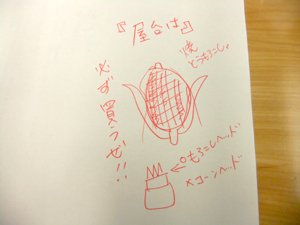 『屋台は』
焼
とうもろこし
必ず買うぜ!!
もろこしヘッド
コーンヘッド